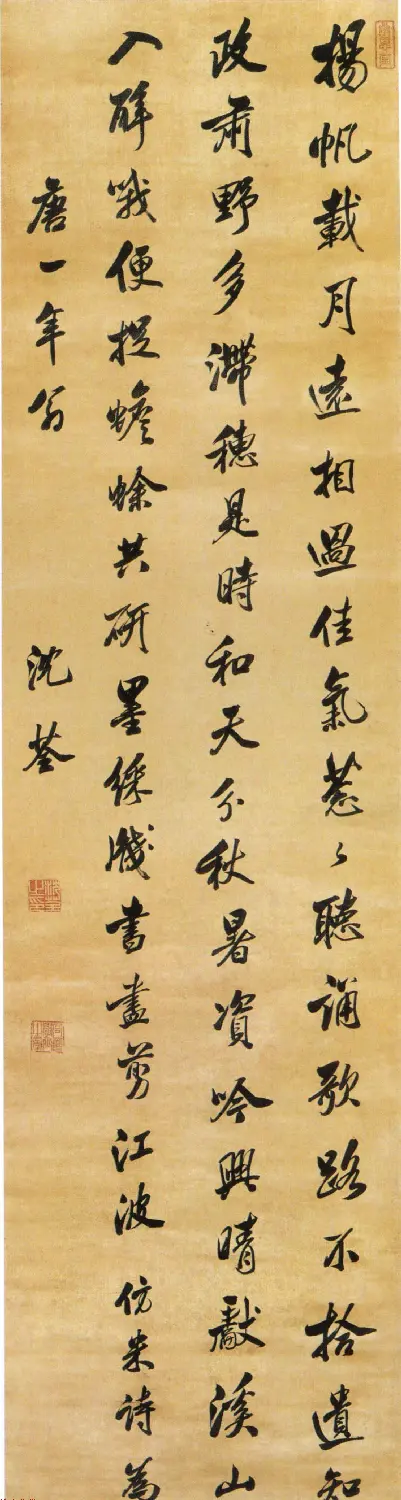 揚帆載月遠相過佳氣葱〻聽誦歌路不拾遺知
政肅野多滯穗是時和天分秋暑資吟興晴獻溪山
入醉哦便捉蟾蜍共研墨綵牋書盡剪江波 仿米詩為
唐一年翁 沈荃
沈荃之印